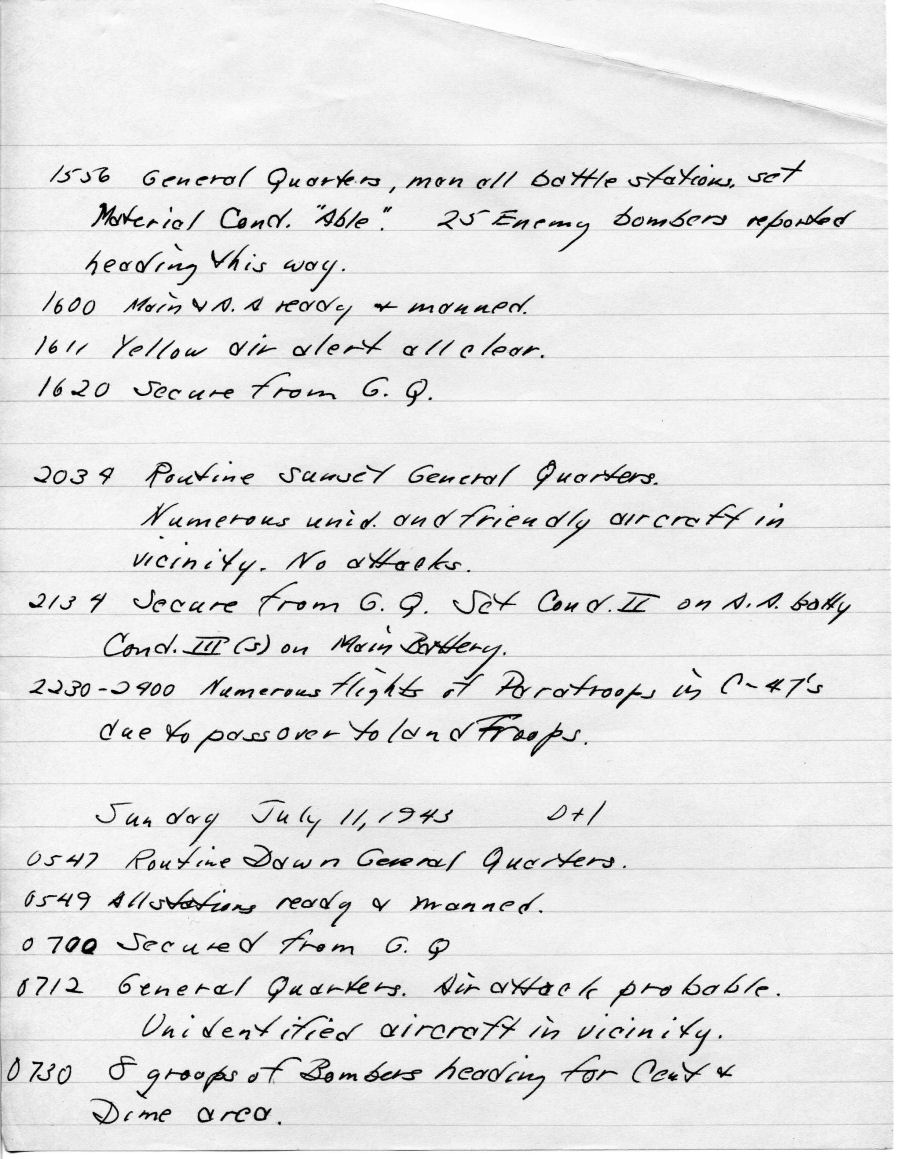 1556 General Quarters, man all battle stations, set
Material Cond. "Able". 25 Enemy bombers reported
heading this way.
1600 Main & A.A ready & manned.
1611 Yellow air alert all clear.
1620 Secure from G.Q.
2034 Routine sunset General Quarters.
Numerous unid. and friendly aircraft in
vicinity. No attacks.
2134 Secure from G.Q. Set Cond. II on A.A. batty
Cond. III (s) on Main Battery.
2230-2400 Numerous flights of Paratroops in C-47's
due to pass over to land Troops.
Sunday July 11, 1943 D+1
0547 Routine Dawn General Quarters.
0549 All stations ready & manned.
0700 Secured from G.Q
0712 General Quarters. Air attack probable.
Unidentified aircraft in vicinity.
0730 8 groups of Bombers heading for Cent &
Dime area.